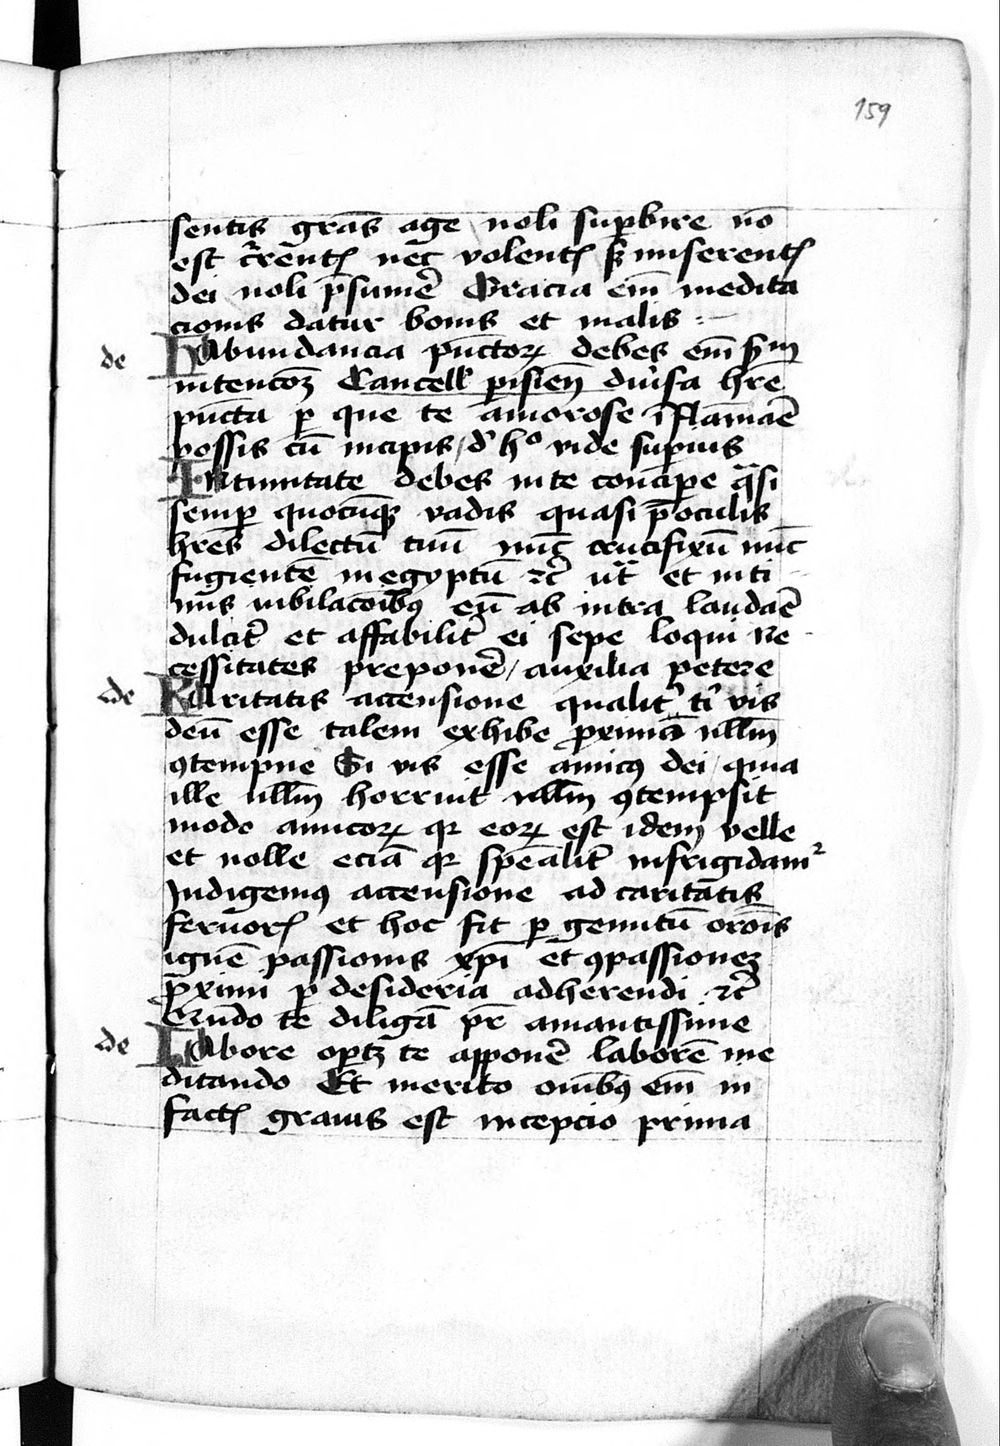 159
sentis grãs age noli sup̱bire nō
est c̄rentꝭ nec volentꝭ ſꝫ miserentꝭ
dei noli p̄sumē Gracia em̄ medita
cionis datur bonis et malis :~
de Habundancia pūctoꝝ debes em̄ sm̄
intencoꝫ Cancell' pisien̄ diũsa hr̄e
pūcta ꝑ que te amorose īflāmaē
possis cū incipis / d' hº vide superius
Intimitate debes in te concip̱e q̄si
semꝑ quocūqꝫ vadis quasi p̄ oculis
hr̄es dilectū tuū nūc crucifixū nūc
fugientē in egyptū ⁊c̄ ut̄ et inti
mis iubilacōibꝰ eū ab intra laudaē
dulcit̄ et affabilit̄ ei sepe loqui ne
cessitates preponē / auxilia petere
de Karitatis accensione qualit̓ t̓ vis
deū esse talem exhibe ꝓximū nllm̄
ꝯtempne Si vis esse amicꝰ dei / quia
ille nllm̄ horruit nllm̄ ꝯtempsit
modo amicoꝝ qꝛ eoꝝ est idem velle
et nolle eciā qꝛ spēalit̄ infrigidamᷣ
Indigemꝰ accensione ad caritatis
feruorꝭ et hoc fit ꝑ gemitū orōis
ignē passionis xp̄i et ꝯpassionez
ꝓximi ꝑ desideria adherendi ⁊c̄
te diligā pr̄ amantissime
de Labore oꝑtꝫ te apponē laborē me
ditando Et merito om̄ibꝰ em̄ in
factꝭ grauis est incepcio prima